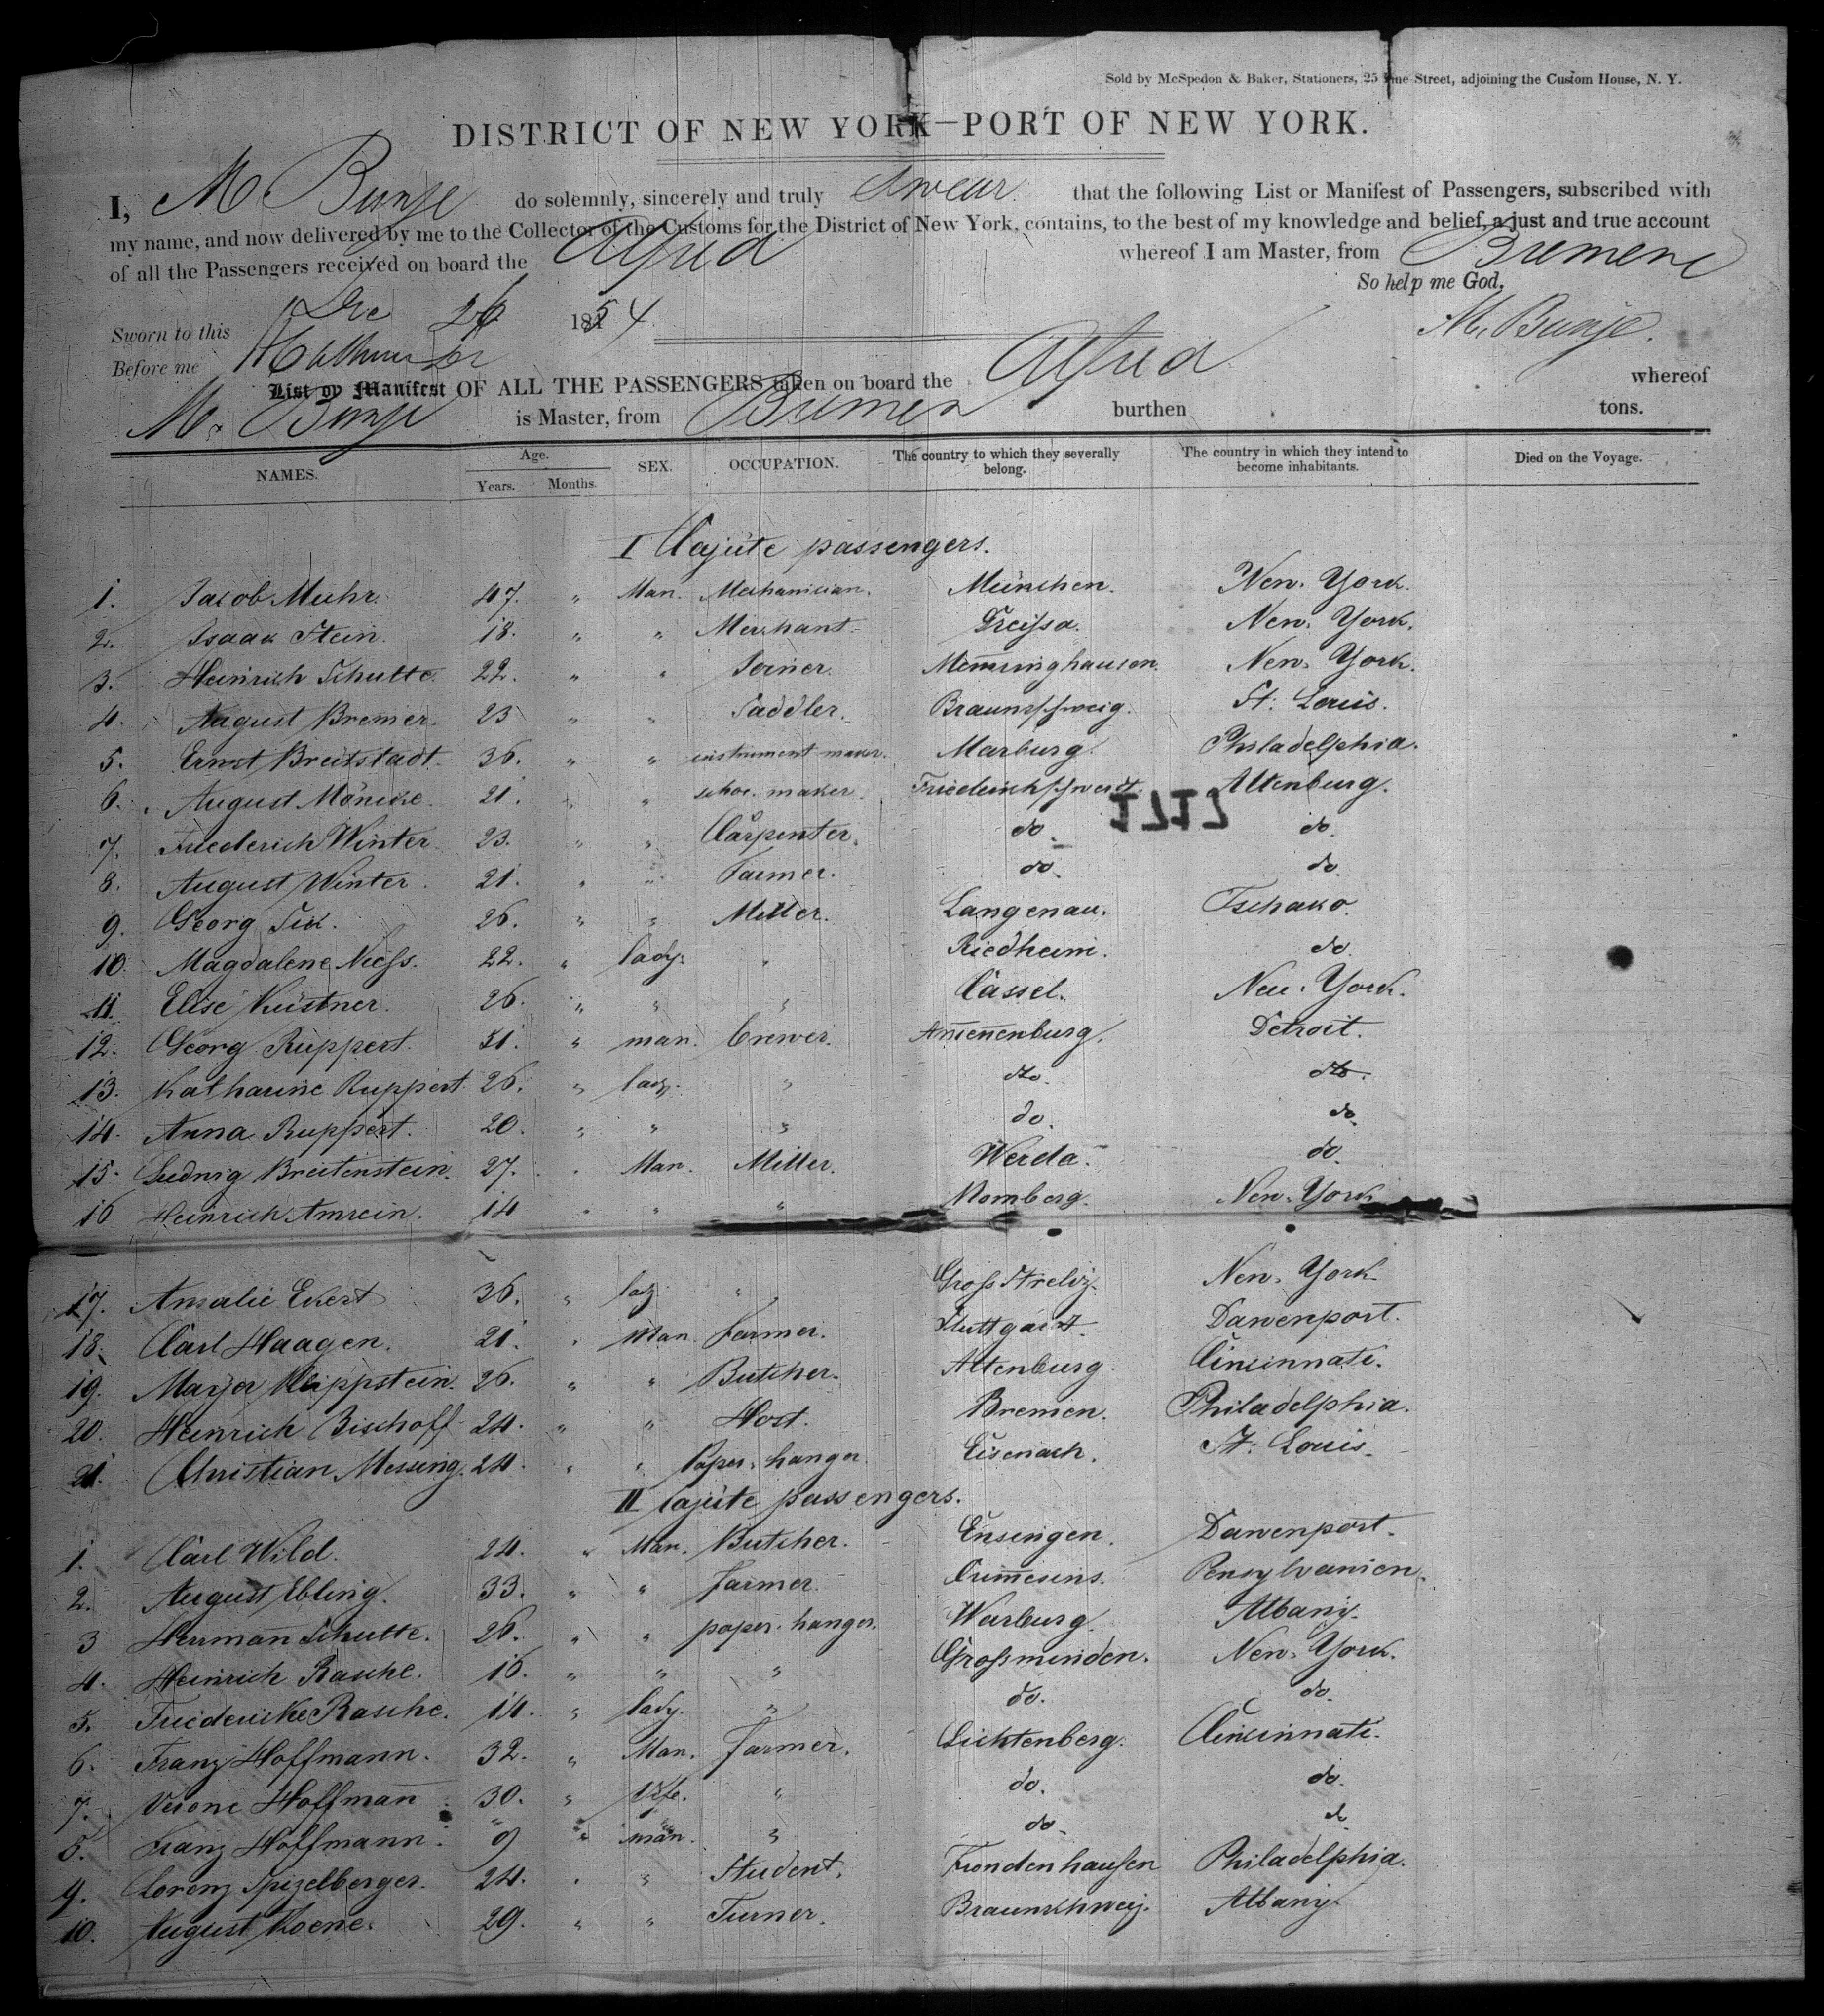 Sold by McSpedon & Baker, Stationers, 25 Pine Street, adjoining the Custom House, N. Y.
DISTRICT OF NEW YORK—PORT OF NEW YORK.
I, M. Bunje do solemnly, sincerely and truly Swear that the following List or Manifest of Passengers, subscribed with
my name, and now delivered by me to the Collector of the Customs for the District of New York, contains, to the best of my knowledge and belief, a just and true account
of all the Passengers received on board the Alfred whereof I am Master, from Bremen
So help me God,
Sworn to this Dec 26 1854 M. Bunje.
Before me
List or Manifest OF ALL THE PASSENGERS taken on board the Alfred whereof
M. Bunje is Master, from Bremen burthen tons.
NAMES. Age. Years. Months. SEX. OCCUPATION. The country to which they severally belong. The country in which they intend to become inhabitants. Died on the Voyage.
I Cajüte passengers.
1. Jacob Muhr. 47. " Man. Mechanician. München. New. York.
2. Isaak Stein. 18. " " Merchant. Treÿsa. New. York.
3. Heinrich Schutte. 22. " " Memringhausen. New. York.
4. August Bremer. 23 " " Saddler. Braunschweig. St. Louis.
5. Ernst Breitstadt. 36. " " instrument maker. Marburg. Philadelphia.
6. August Mönike. 21. " " schoe. maker. Altenburg.
1717
7. Friederich Winter. 23. " " Carpenter. do. do.
8. August Winter. 21. " " Farmer. do. do.
9. Georg Sick. 26. " " Miller. Langenau. Tschako.
10. Magdalene Niess. 22. " lady. " Riedheim. do.
11. Elise Küstner. 26. " " " Cassel. New. York.
12. Georg Ruppert. 31. " man. brewer. Amenenburg. Detroit.
13. Katharine Ruppert. 26. " lady. " do. do.
14. Anna Ruppert. 20. " " " do. do
15. Ludwig Breitenstein. 27. " Man. Miller. Werda. do.
16 Heinrich Amrein. 14 " " " Homberg. New. York
17. Amalie Ekert 36. " lady " Gross Streliz. New. York
18. Carl Haagen. 21. " Man. farmer. Stuttgart. Dawenport.
19. Mayer Klippstein. 26. " " Butcher. Altenburg. Cincinnati.
20. Heinrich Bischoff 24. " " Host. Bremen. Philadelphia.
21. Christian Messing. 24. " " Paper. hanger. Eisenach. St. Louis.
II Cajüte passengers.
1. Carl Wild. 24. " Man. Butcher. Ensingen. Dawenport.
2. August Ebling. 33. " " farmer. Pensylvanien.
3 Herrman Schutte. 26. " " paper. hanger. Warburg. Albany.
4. Heinrich Rasche. 16. " " " Grossminden. New. York.
5. Friedericke Rasche. 14. " lady. " do. do.
6. Franz Hoffmann. 32. " Man. farmer. Lichtenberg. Cincinnati.
7. Verone Hoffman 30. " wife. " do. do.
8. Franz Hoffmann. 9 " man. " do. do
9. Lorenz Spizelberger. 24. " " Student. Frondenhausen Philadelphia.
10. August Koene. 29. " " Turner. Braunschweig. Albany.